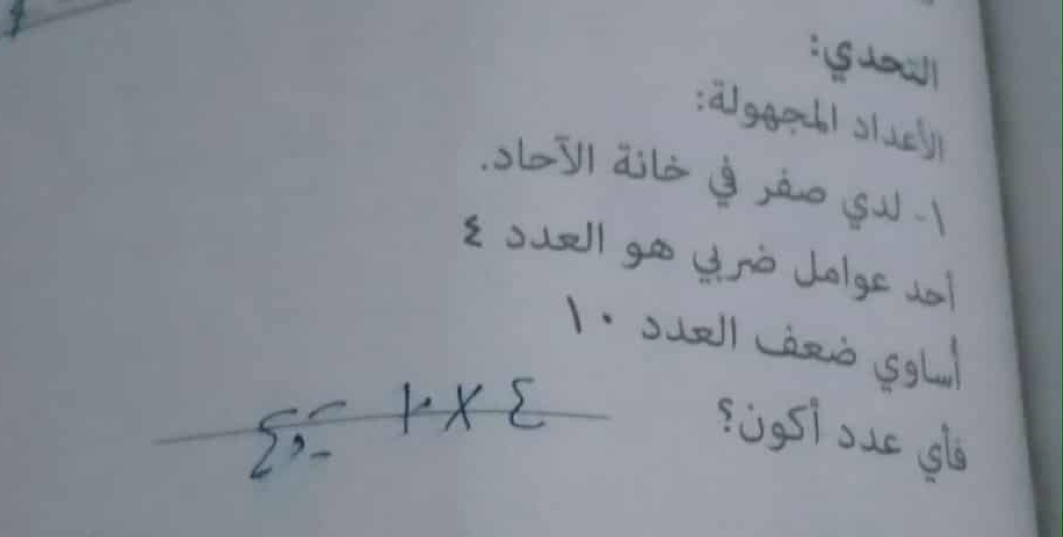 التحدي:
الأعداد المجهولة:
١- لدي صفر في خانة الآحاد.
أحد عوامل ضربي هو العدد ٤
أساوي ضعف العدد ١٠
فأي عدد أكون؟
٤ × ١٠ = ٤٠